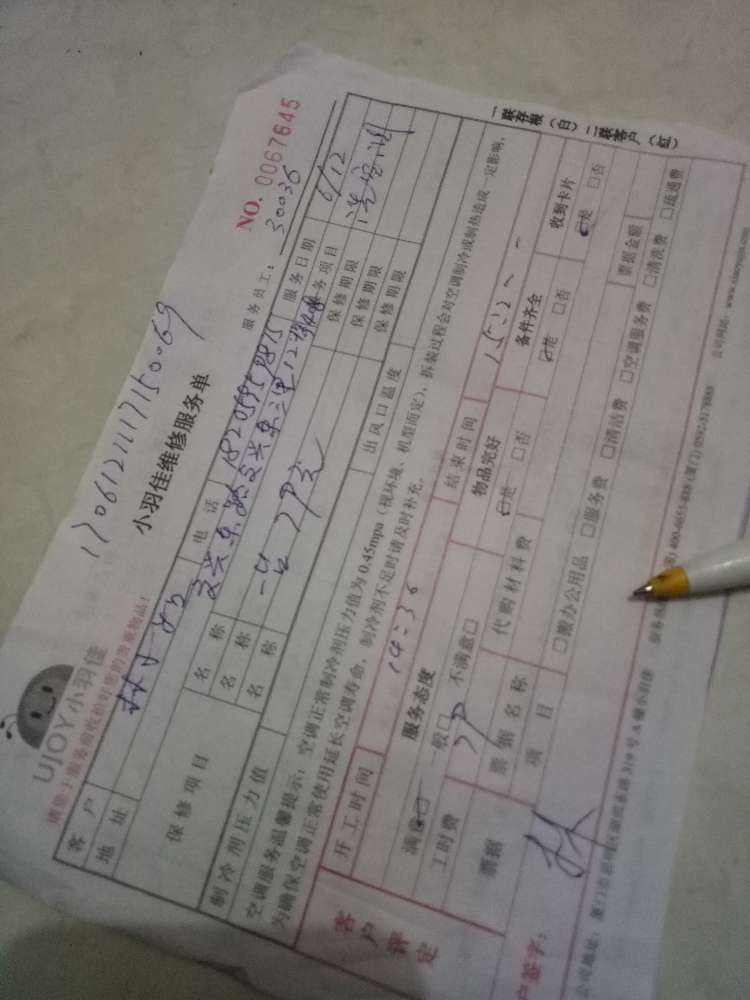 1706121117150069
UJOY小羽佳
小羽佳维修服务单
NO. 0067645
请您于服务前收拾好您的贵重物品!
服务员工: 30036
客户
电话
服务日期 6/12
地址
服务项目 洗空调
保修项目
名称
保修期限
名称
保修期限
名称
保修期限
制冷剂压力值
出风口温度
空调服务温馨提示: 空调正常制冷剂压力值为0.45mpa(视环境、机型而定), 拆装过程会对空调制冷或制热造成一定影响,
为确保空调正常使用延长空调寿命, 制冷剂不足时请及时补充。
一联存根(白) 二联客户(红)
客户评定
开工时间 14:36
结束时间
服务态度
物品完好
备件齐全
收到卡片
满意□ 一般□ 不满意□
是 □否
是 □否
是 □否
工时费
代购材料费
票据
票据名称
票据金额
项目
□搬办公用品 □服务费 □清洁费 □空调服务费 □清洗费 □疏通费
户签字: 林